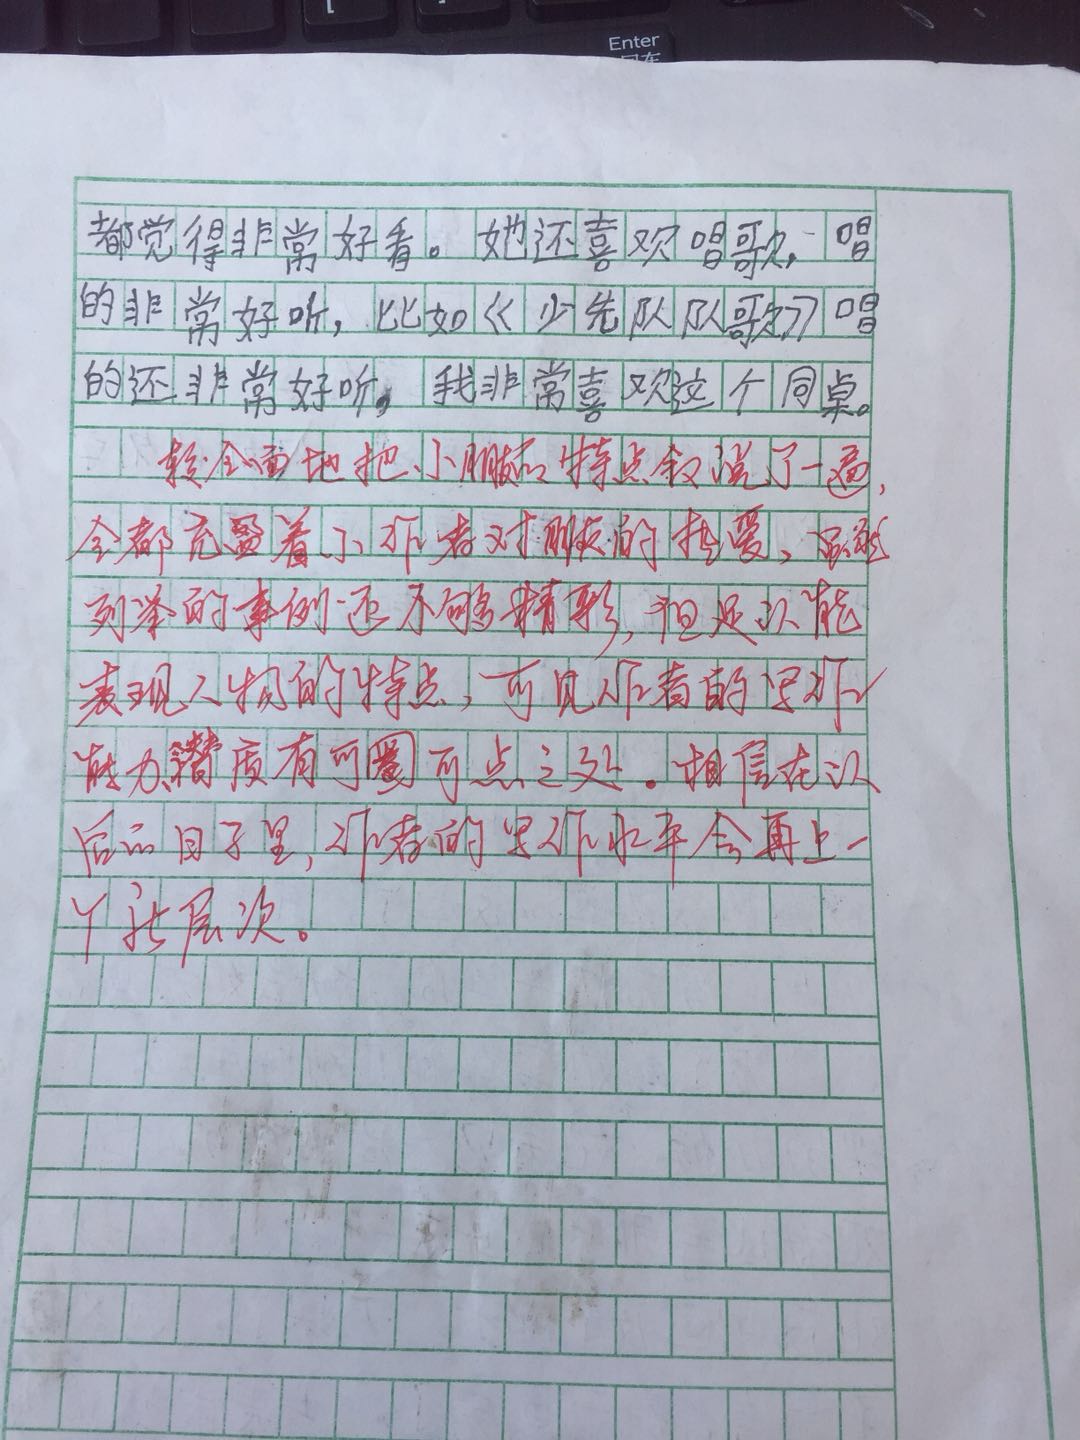 Enter
都觉得非常好看。她还喜欢唱歌，唱
的非常好听，比如《少先队队歌》唱
的还非常好听，我非常喜欢这个同桌。
较全面地把小朋友的特点叙说了一遍，
全都充盈着小作者对朋友的热爱，虽然
列举的事例还不够精彩，但足以能
表现人物的特点，可见作者的写作
能力潜质有可圈可点之处。相信在以
后的日子里，作者的写作水平会再上一
个新层次。